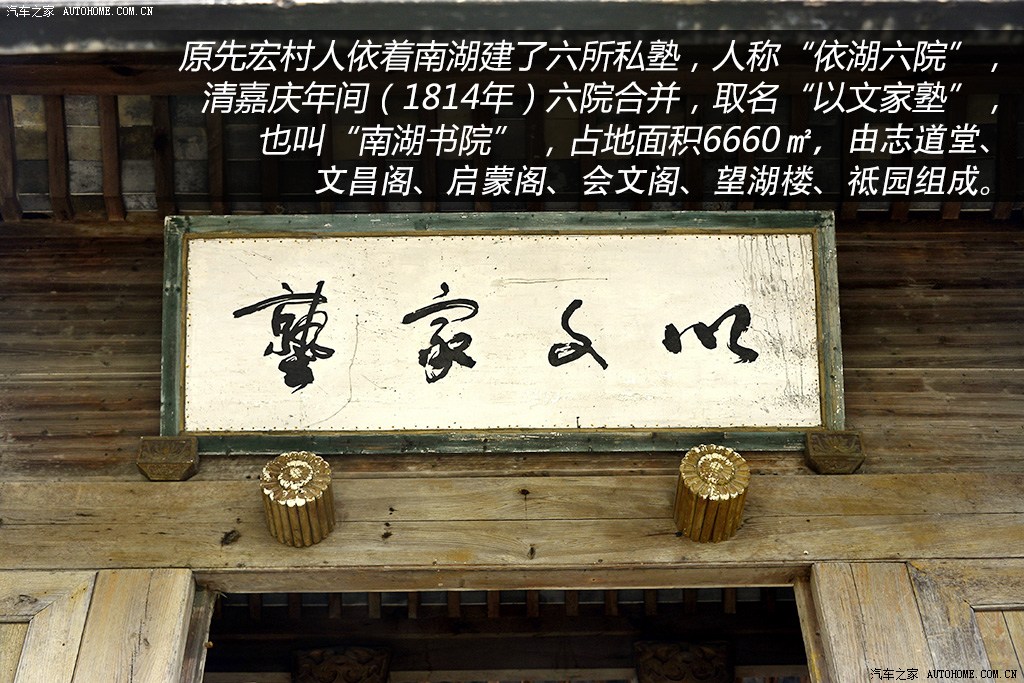 汽车之家 AUTOHOME.COM.CN
原先宏村人依着南湖建了六所私塾，人称“依湖六院”，
清嘉庆年间（1814年）六院合并，取名“以文家塾”，
也叫“南湖书院”，占地面积6660㎡，由志道堂、
文昌阁、启蒙阁、会文阁、望湖楼、祗园组成。
以文家塾
汽车之家 AUTOHOME.COM.CN